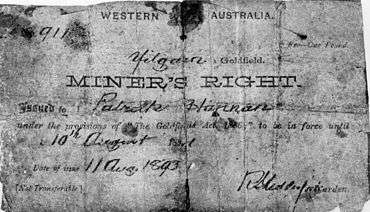 WESTERN AUSTRALIA.
911
Fee—One Pound
Yilgarn Goldfield.
MINER'S RIGHT.
Issued to Patrick Hannan
under the provisions of "The Goldfields Act, to be in force until
10th August
Date of issue 11 Aug. 1893
Warden.
(Not Transferable)